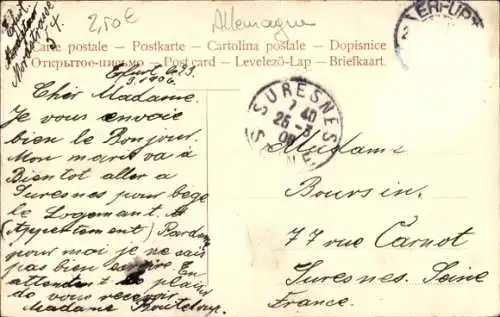 Erfurt
Moltkestrasse
34
2,50€
Allemagne
ERFURT
Carte postale – Postkarte – Cartolina postale – Dopisnice
Открытое-письмо – Post card – Levelező-Lap – Briefkaart.
Erfurt 23.
3. 1906.
Cher Madame.
Je vous envoie
bien le Bonjour.
Mon marit va à
Bientot aller a
Suresnes pour
le Logemant.
(Appertement) Pardon
pour moi je ne sais
pas bien ecrire. En
attendent le plaisir
de vous recevoir
Madame
SURESNES
7 40
25 - 3
06
SEINE
Madame
Boursin.
77 rue Carnot
Suresnes. Seine
France.